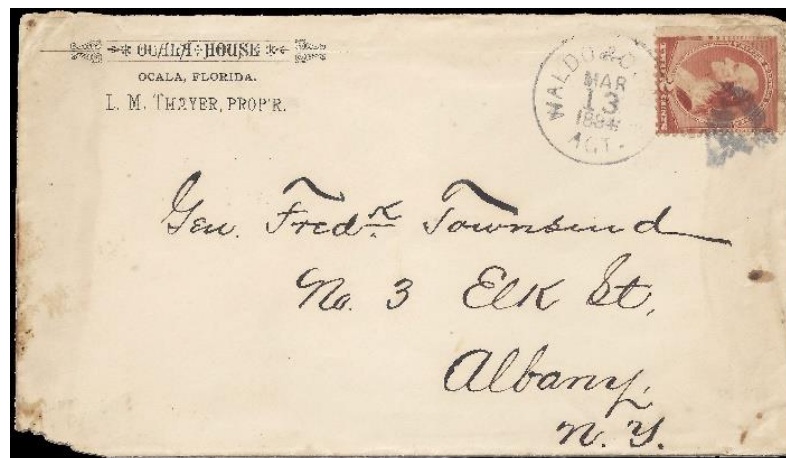 OCALA HOUSE
OCALA, FLORIDA.
L. M. THAYER, PROP'R.
WALDO & O
MAR
13
1884
AGT.
Gen. Fredk Townsend
No. 3 Elk St,
Albany,
N. Y.